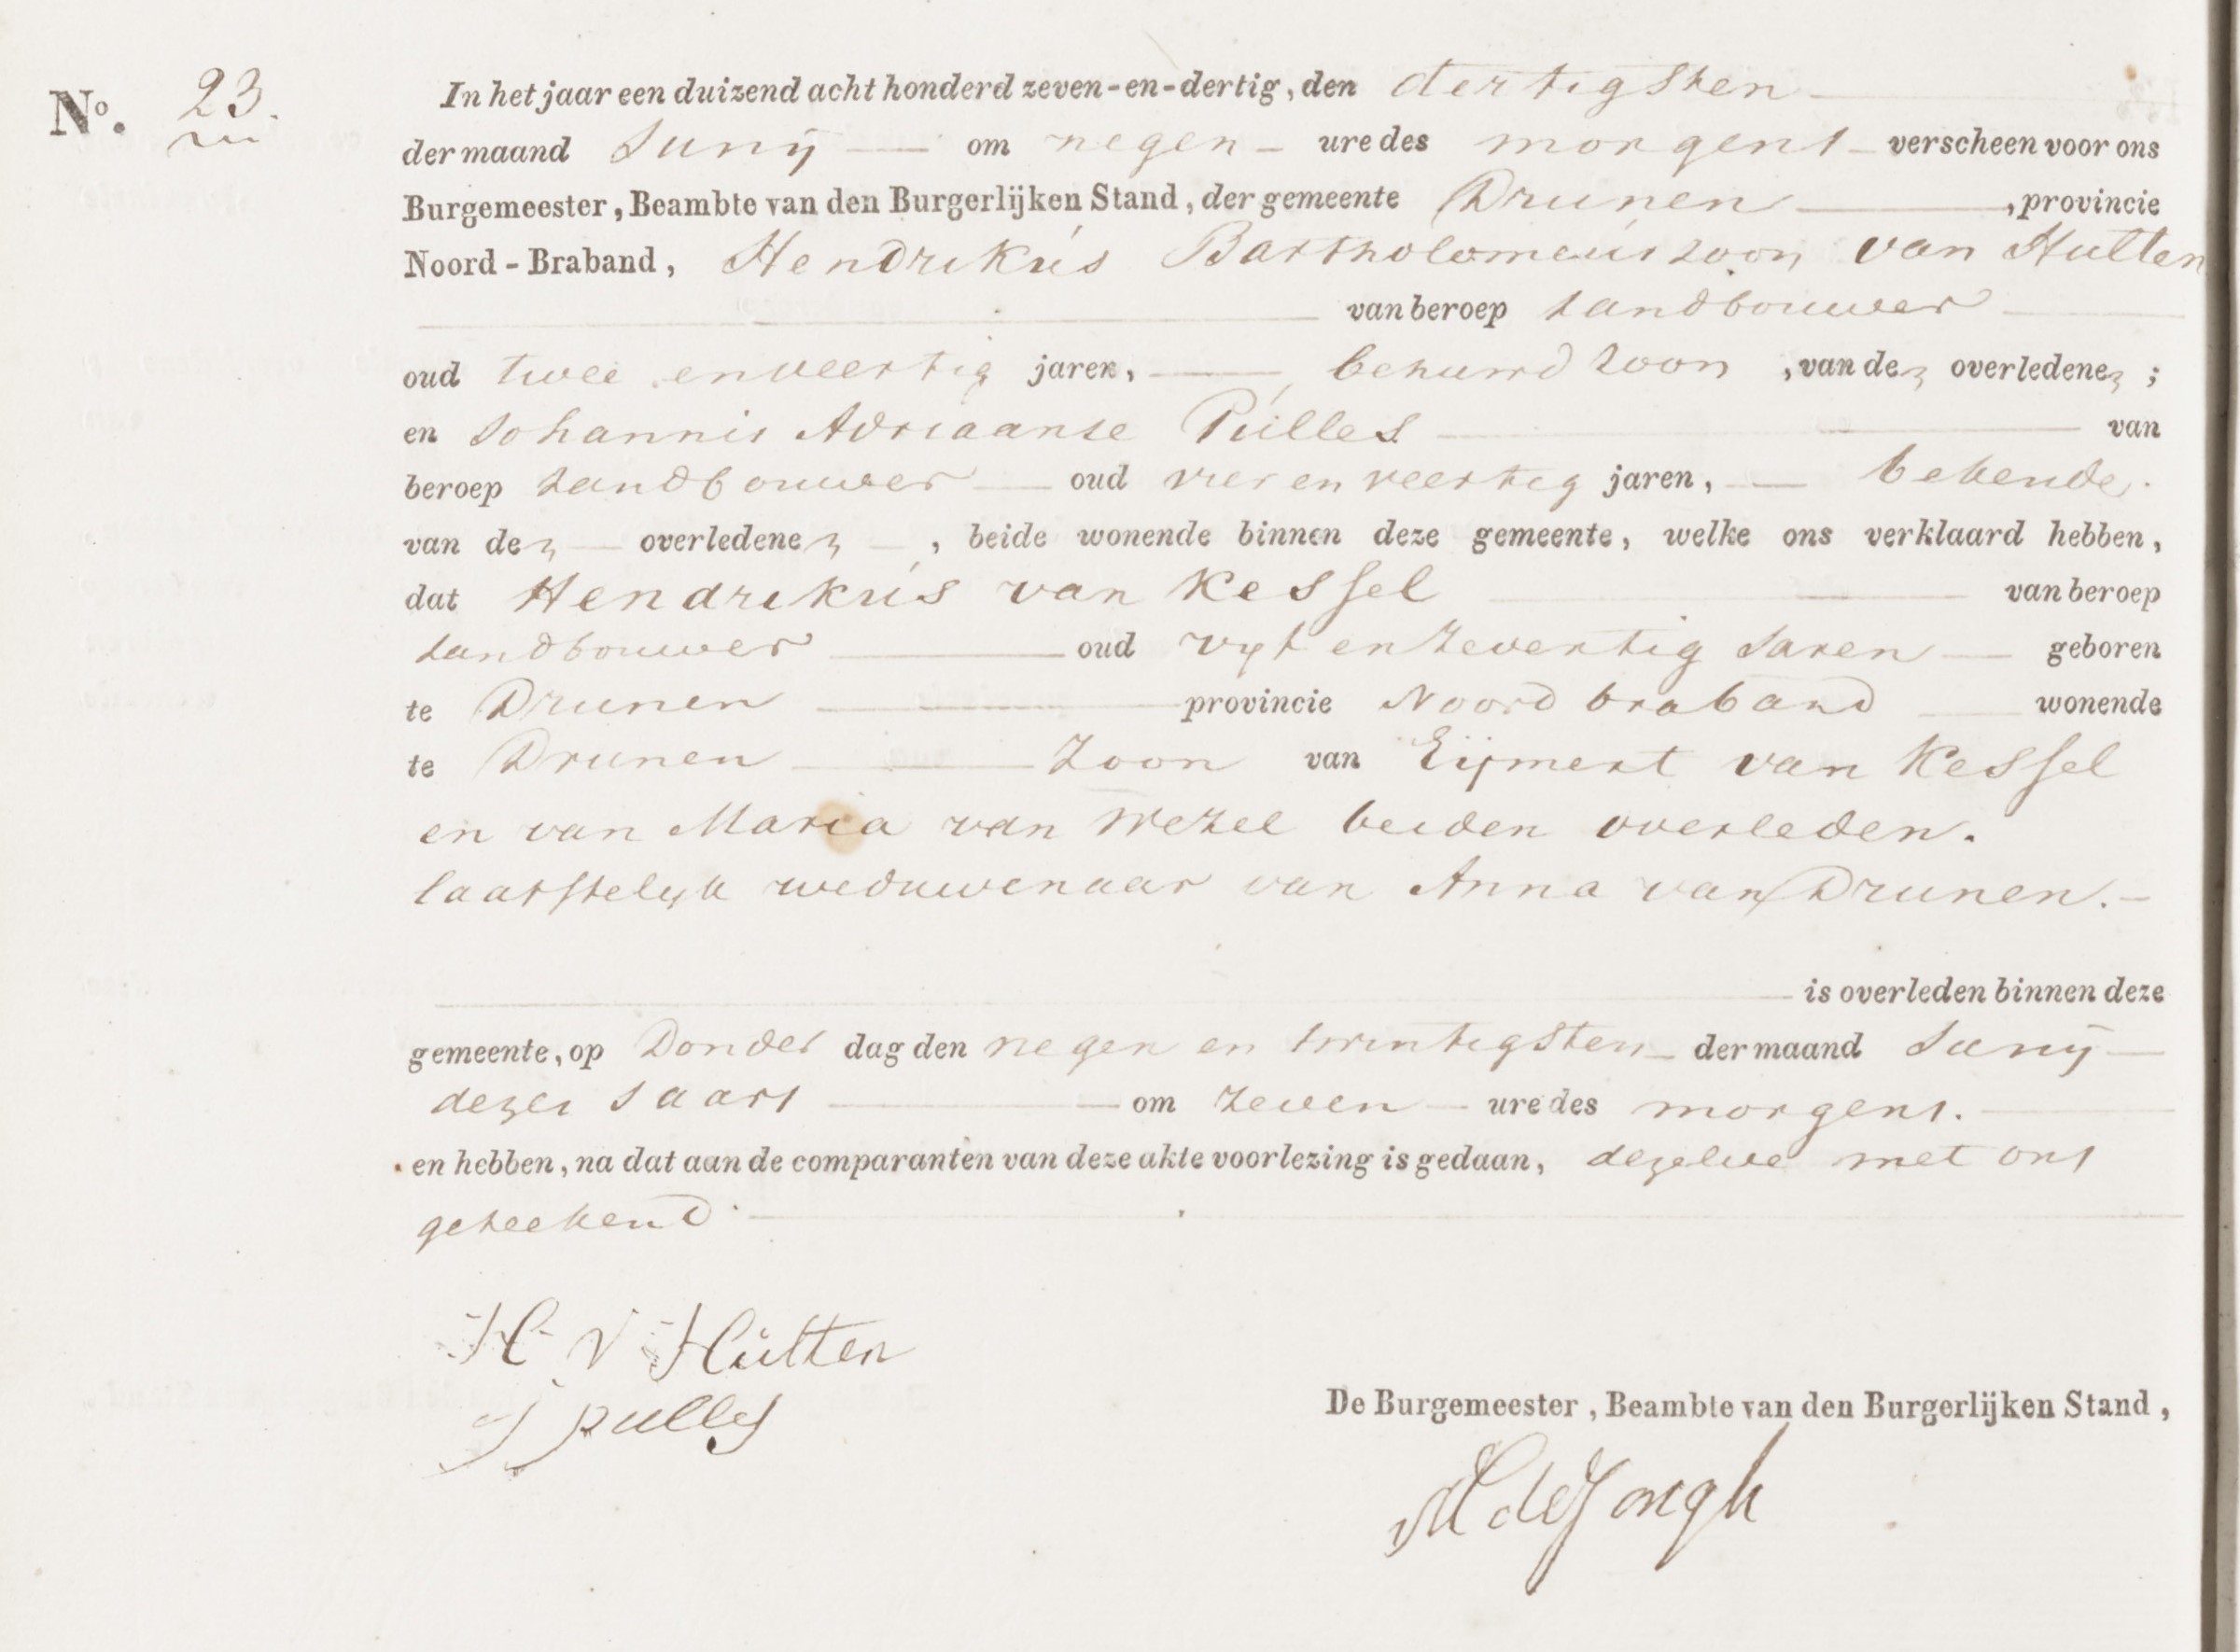 No. 23.
In het jaar een duizend acht honderd zeven-en-dertig, den dertigsten
der maand Junij om negen ure des morgens verscheen voor ons
Burgemeester, Beambte van den Burgerlijken Stand, der gemeente Drunen, provincie
Noord-Braband, Hendrikus Bartholomeus zoon van Hulten
van beroep Landbouwer
oud twee en veertig jaren, behuwd zoon, van den overledenen;
en Johannis Adriaanse Pulles van
beroep Landbouwer oud vier en veertig jaren, bekende.
van den overledenen, beide wonende binnen deze gemeente, welke ons verklaard hebben,
dat Hendrikus van Kessel van beroep
Landbouwer oud vyf en zeventig Jaren geboren
te Drunen provincie Noord braband wonende
te Drunen Zoon van Eijmert van Kessel
en van Maria van Wezel beiden overleden.
laatstelyk weduwenaar van Anna van Drunen.-
is overleden binnen deze
gemeente, op Donder dag den negen en twintigsten der maand Junij
dezes Jaars om zeven ure des morgens.
en hebben, na dat aan de comparanten van deze akte voorlezing is gedaan, dezelve met ons
geteekend.
H v Hulten
J pulles
De Burgemeester, Beambte van den Burgerlijken Stand,
de Jongh